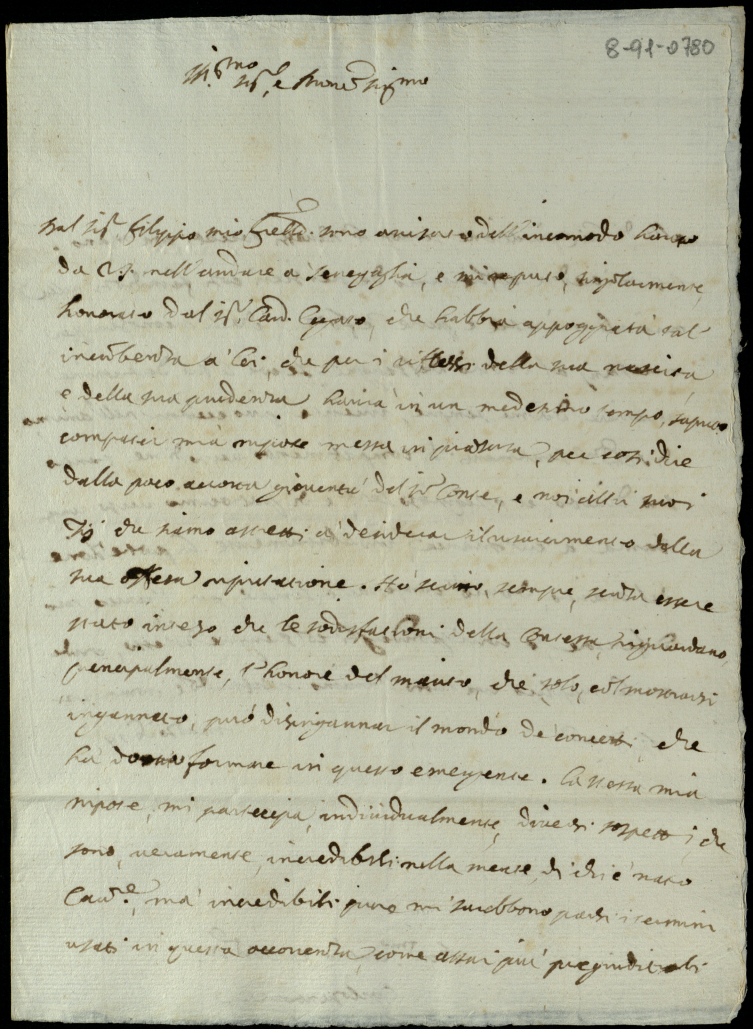 8-91-0780
Ill.mo Sig.r e Pron
Dal Sig.r Filippo mio fratello sono avisato dell'incomodo havuto
da V.S. nell'andare a Senegaglia, e mi reputo, singolarmente,
honorato dal Sig.r Card. che habbia appoggiata tal'
incumbenza a' lei, che per i riflessi della sua nascita
e della sua prudenza havrà in un medesimo tempo, saputo
compatir mia nipote messa in per così dire
dalla poco accorta gioventù del Sig.r Conte, e noi altri suoi
Zii che siamo astretti a' desiderar il risarcimento della
sua offesa riputatione. Hò sempre, senza essere
stato inteso che le sodisfationi della Contessa, riguardano,
principalmente, l'honore del marito, che solo, col mostrarsi
ingannato, può disingannar il mondo de' concetti, che
hà formare in questo emergente. La stessa mia
nipote, mi partecipa, individualmente, diversi sospetti, che
sono, veramente, incredibili nella mente di chi è nato
Cav.re, mà incredibili pure mi sarebbono parsi i termini
usati in questa occorrenza, come assai più pregiuditiali